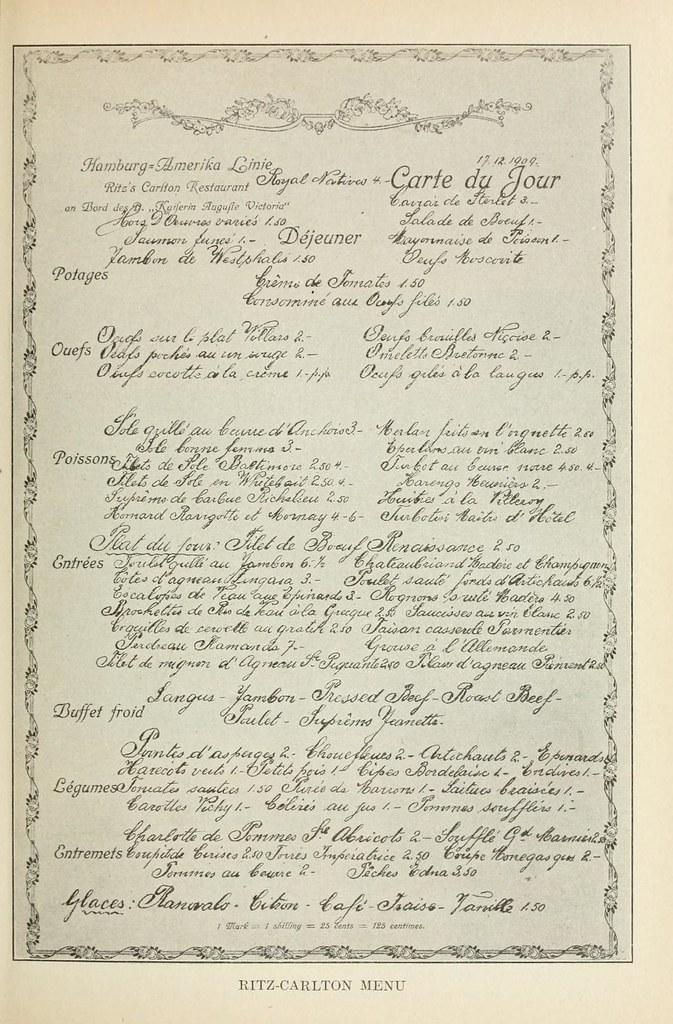 Hamburg=Amerika Linie
17.12.1909.
Ritz's Carlton Restaurant Royal Natives 4.- Carte du Jour
an Bord des D. „Kaiserin Auguste Victoria"
Caviar de Sterlet 3.-
Hors D'Oeuvres variés 1.50 Salade de Boeuf 1.-
Saumon fumé 1.- Déjeuner Mayonnaise de Poisson 1.-
Jambon de Westphalie 1.50 Oeufs Moscovite
Potages Crême de Tomates 1.50
Consommé aux Oeufs filés 1.50
Oeufs sur le plat Villars 2.- Oeufs brouilles Niçoise 2.-
Ouefs Oeufs pochés au vin rouge 2.- Omeletts Bretonne 2.-
Oeufs cocotte à la crème 1.-p.p. Oeufs gelés à la langue 1.-p.p.
Sole grillé au beurre d'Anchois 3.- Merlan frits en l'orgnette 2.50
Sole bonne femme 3.- Eperlans au vin blanc 2.50
Poissons Filets de Sole Baltimore 2.50 4.- Turbot au beurre noire 4.50. 4.-
Filets de Sole en Whitebait 2.50. 4.- Harengs Meunière 2.-
Suprême de barbue Richelieu 2.50 Huitres à la Villeroy
Homard Ravigotte et Mornay 4.-6- Turbotin Maître d'Hôtel
Plat du Jour: Filet de Boeuf Renaissance 2.50
Entrées Poulet grillé au Jambon 6.½ Chateaubriand Madère et Champignon
Côtes d'agneau 3.- Poulet sauté fonds d'Artichauts 6.½
Escalopes de Veau aux Epinards 3.- Rognons sauté Madère 4.50
Brochettes de Ris de Veau à la Grecque 2.50 Saucisses au vin blanc 2.50
Coquilles de cervelle au gratin 2.50 Faisan casserole Parmentier
Perdreau 7.- Grouse à l'Allemande
Filet de mignon d'Agneau Sce Piquante 2.50 Pilaw d'agneau 2.50
Langue - Jambon - Pressed Beef - Roast Beef -
Buffet froid Poulet - Suprême Jeanette -
Pointes d'asperges 2.- Chouefleurs 2.- Artichauts 2.- Epinards
Haricots verts 1.- Petits pois 1.- Cêpes Bordelaise 1.- Endives 1.-
Légumes Tomates sautées 1.50 Purée de Marrons 1.- Laitues braisées 1.-
Carottes Vichy 1.- Céléris au jus 1.- Pommes soufflées 1.-
Charlotte de Pommes Sce Abricots 2.- Soufflé Gd Marnier 2.50
Entremets Coupe de Cerises 2.50 Imperatrice 2.50 Coupe Monegasque 2.-
Pommes au beurre 2.- Pêches Edna 3.50
Glaces: Citron - Café - Fraise - Vanille 1.50
1 Mark = 1 shilling = 25 cents = 125 centimes.
RITZ-CARLTON MENU